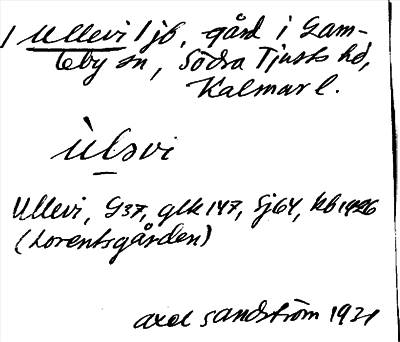 / Ullevi / jb, gård i Gam-
leby sn, Södra Tjusts hd,
Kalmar l.
ùlǝvi
Ullevi, G37, glk 147, Sj64, kb 1426
(Lorentsgården)
Axel Sandström 1921